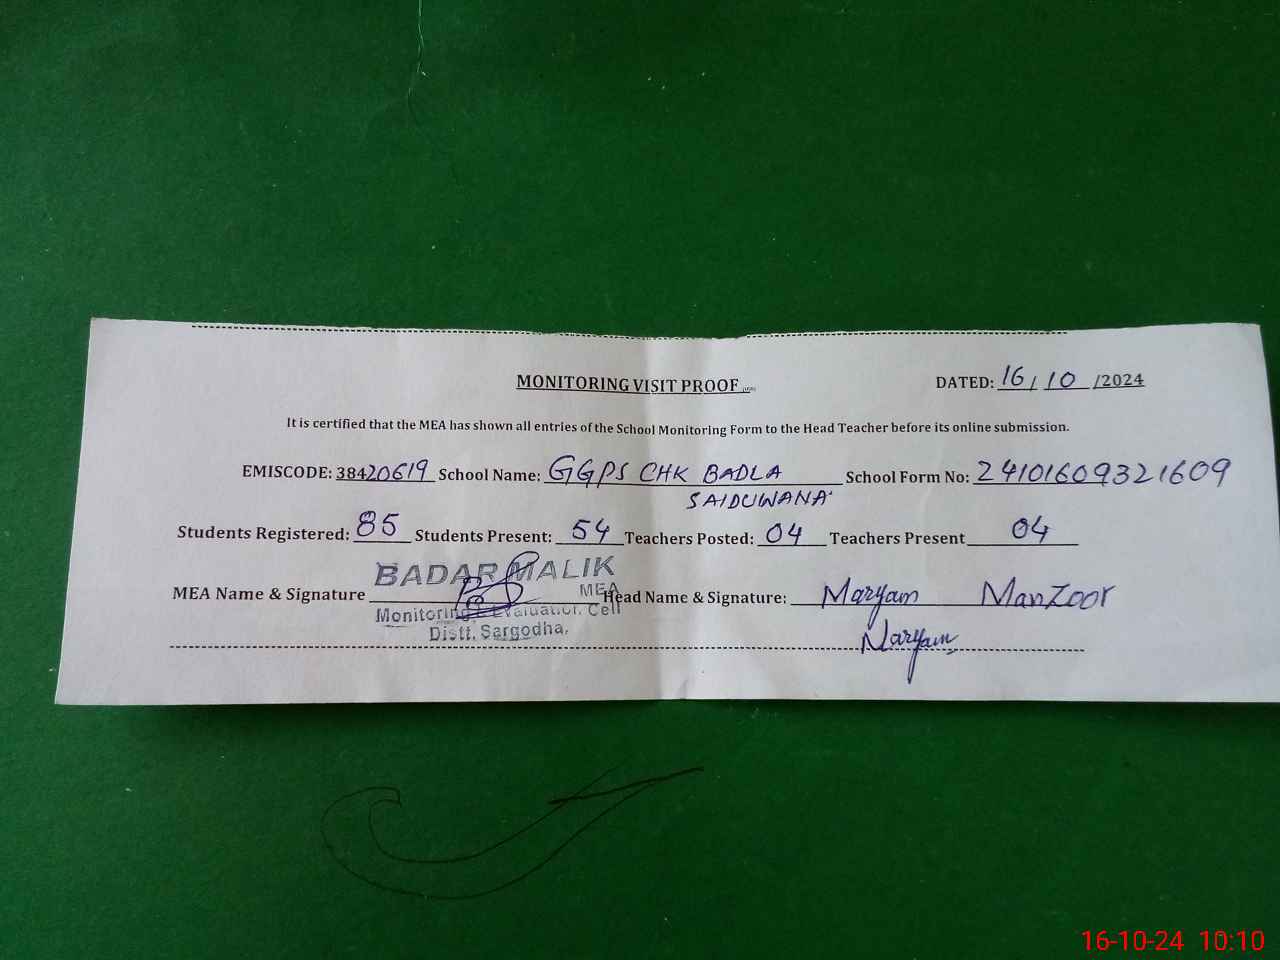 MONITORING VISIT PROOF
DATED: 16/10/2024
It is certified that the MEA has shown all entries of the School Monitoring Form to the Head Teacher before its online submission.
EMISCODE: 38420619 School Name: GGPS CHK BADLA School Form No: 24101609321609
SAIDUWANA
Students Registered: 85 Students Present: 54 Teachers Posted: 04 Teachers Present 04
BADAR MALIK
MEA
MEA Name & Signature Head Name & Signature: Maryam Manzoor
Monitoring & Evaluation Cell
Distt. Sargodha.
Maryam
16-10-24 10:10